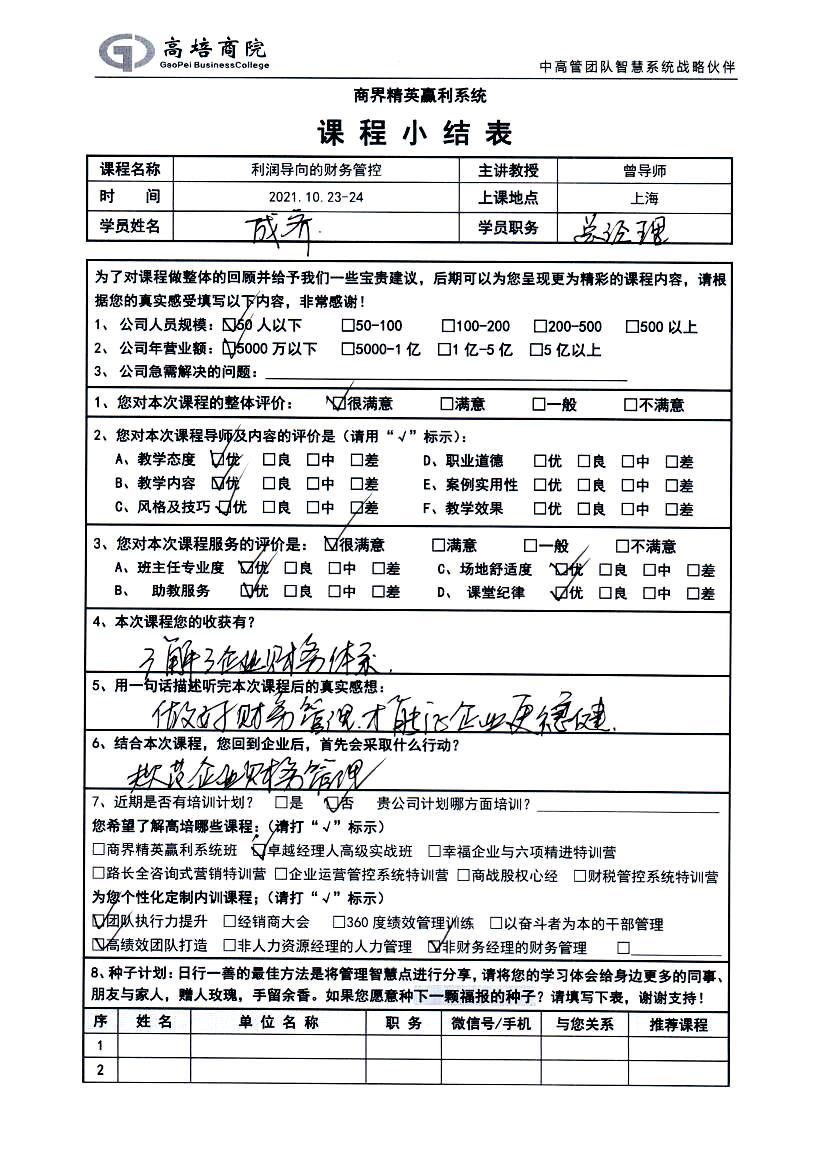 高培商院
GaoPei BusinessCollege
中高管团队智慧系统战略伙伴
商界精英赢利系统
课程小结表
课程名称 利润导向的财务管控 主讲教授 曾导师
时 间 2021.10.23-24 上课地点 上海
学员姓名 成 学员职务 总经理
为了对课程做整体的回顾并给予我们一些宝贵建议，后期可以为您呈现更为精彩的课程内容，请根
据您的真实感受填写以下内容，非常感谢！
1、 公司人员规模：☑50 人以下 □50-100 □100-200 □200-500 □500 以上
2、 公司年营业额：☑5000 万以下 □5000-1 亿 □1 亿-5 亿 □5 亿以上
3、 公司急需解决的问题：
1、您对本次课程的整体评价： ☑很满意 □满意 □一般 □不满意
2、您对本次课程导师及内容的评价是（请用“√”标示）：
A、教学态度 ☑优 □良 □中 □差 D、职业道德 □优 □良 □中 □差
B、教学内容 ☑优 □良 □中 □差 E、案例实用性 □优 □良 □中 □差
C、风格及技巧 ☑优 □良 □中 □差 F、教学效果 □优 □良 □中 □差
3、您对本次课程服务的评价是： ☑很满意 □满意 □一般 □不满意
A、班主任专业度 ☑优 □良 □中 □差 C、场地舒适度 ☑优 □良 □中 □差
B、 助教服务 ☑优 □良 □中 □差 D、 课堂纪律 ☑优 □良 □中 □差
4、本次课程您的收获有？
了解了企业财务体系.
5、用一句话描述听完本次课程后的真实感想：
做好财务管理.才能让企业更稳健.
6、结合本次课程，您回到企业后，首先会采取什么行动？
企业财务管理
7、近期是否有培训计划？ □是 ☑否 贵公司计划哪方面培训？
您希望了解高培哪些课程：（请打“√”标示）
□商界精英赢利系统班 ☑卓越经理人高级实战班 □幸福企业与六项精进特训营
□路长全咨询式营销特训营 □企业运营管控系统特训营 □商战股权心经 □财税管控系统特训营
为您个性化定制内训课程：（请打“√”标示）
☑团队执行力提升 □经销商大会 □360 度绩效管理训练 □以奋斗者为本的干部管理
☑高绩效团队打造 □非人力资源经理的人力管理 ☑非财务经理的财务管理 □
8、种子计划：日行一善的最佳方法是将管理智慧点进行分享，请将您的学习体会给身边更多的同事、
朋友与家人，赠人玫瑰，手留余香。如果您愿意种下一颗福报的种子？请填写下表，谢谢支持！
序 姓 名 单 位 名 称 职 务 微信号/手机 与您关系 推荐课程
1
2